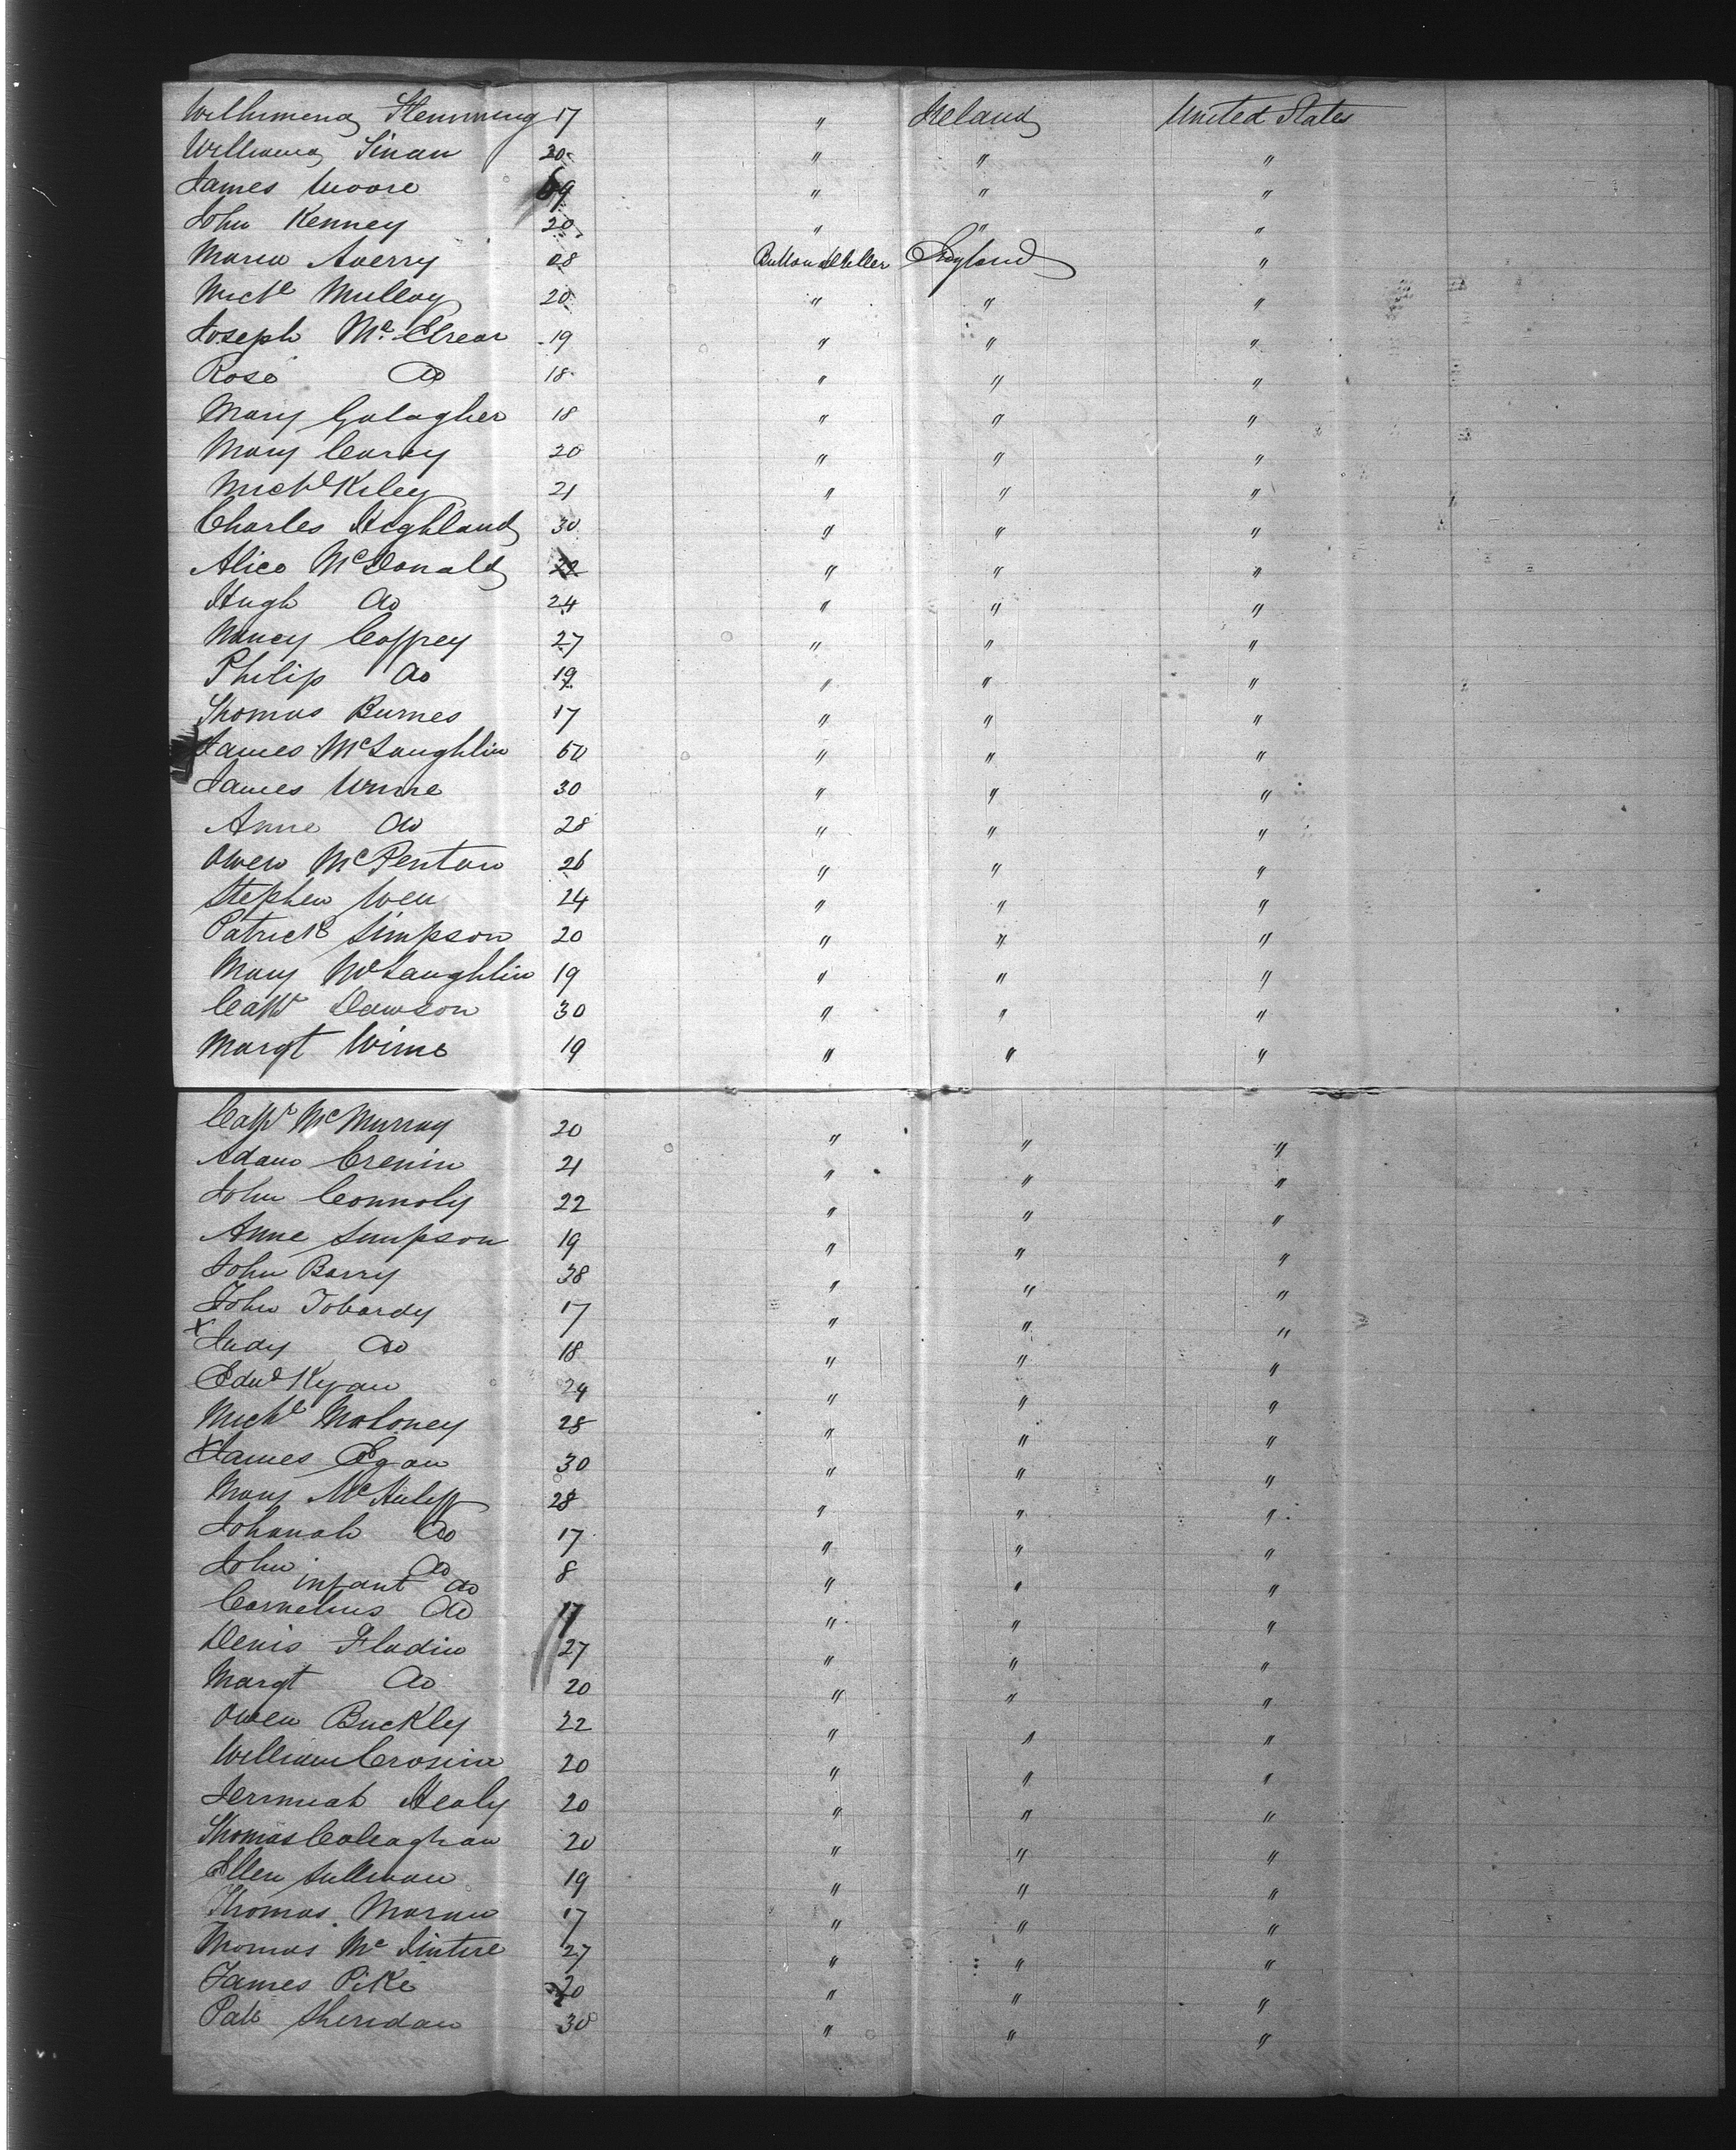 Wilhimena Flemming 17 " Ireland United States
William Finan 20 " " "
James Moore 19 " " "
John Kenney 20 " " "
Maria Averry 08 England "
Michl Mulloy 20 " " "
Joseph Mc Crear 19 " " "
Rose do 18 " " "
Mary Galagher 18 " " "
Mary Carey 20 " " "
Michl Kiley 21 " " "
Charles Highland 30 " " "
Alice McDonald 22 " " "
Hugh do 24 " " "
Nancy Caffrey 27 " " "
Philip do 19 " " "
Thomas Burnes 17 " " "
James McLaughlin 60 " " "
James Wime 30 " " "
Anne do 28 " " "
Owen McPentan 26 " " "
Stephen 24 " " "
Patrick Simpson 20 " " "
Mary McLaughlin 19 " " "
Cathe Dawson 30 " " "
Margt Wime 19 " " "
Cathe McMurray 20 " " "
Adam Crenin 21 " " "
John Connoly 22 " " "
Anne Simpson 19 " " "
John Barry 38 " " "
John Tobardy 17 " " "
x Judy do 18 " " "
Edwd Kyan 24 " " "
Michl Moloney 28 " " "
x James Egan 30 " " "
Mary 28 " " "
Johanah do 17 " " "
John do 8 " " "
infant do
Cornelius do 17 " " "
Denis Fladin 27 " " "
Margt do 20 " " "
Owen Buckly 22 " " "
William Crosina 20 " " "
Jermiah Healy 20 " " "
Thomas Caleaghan 20 " " "
Ellen Sullivan 19 " " "
Thomas Moran 17 " " "
Thomas Mc Intire 27 " " "
James Pike 20 " " "
Patk Sheridan 30 " " "